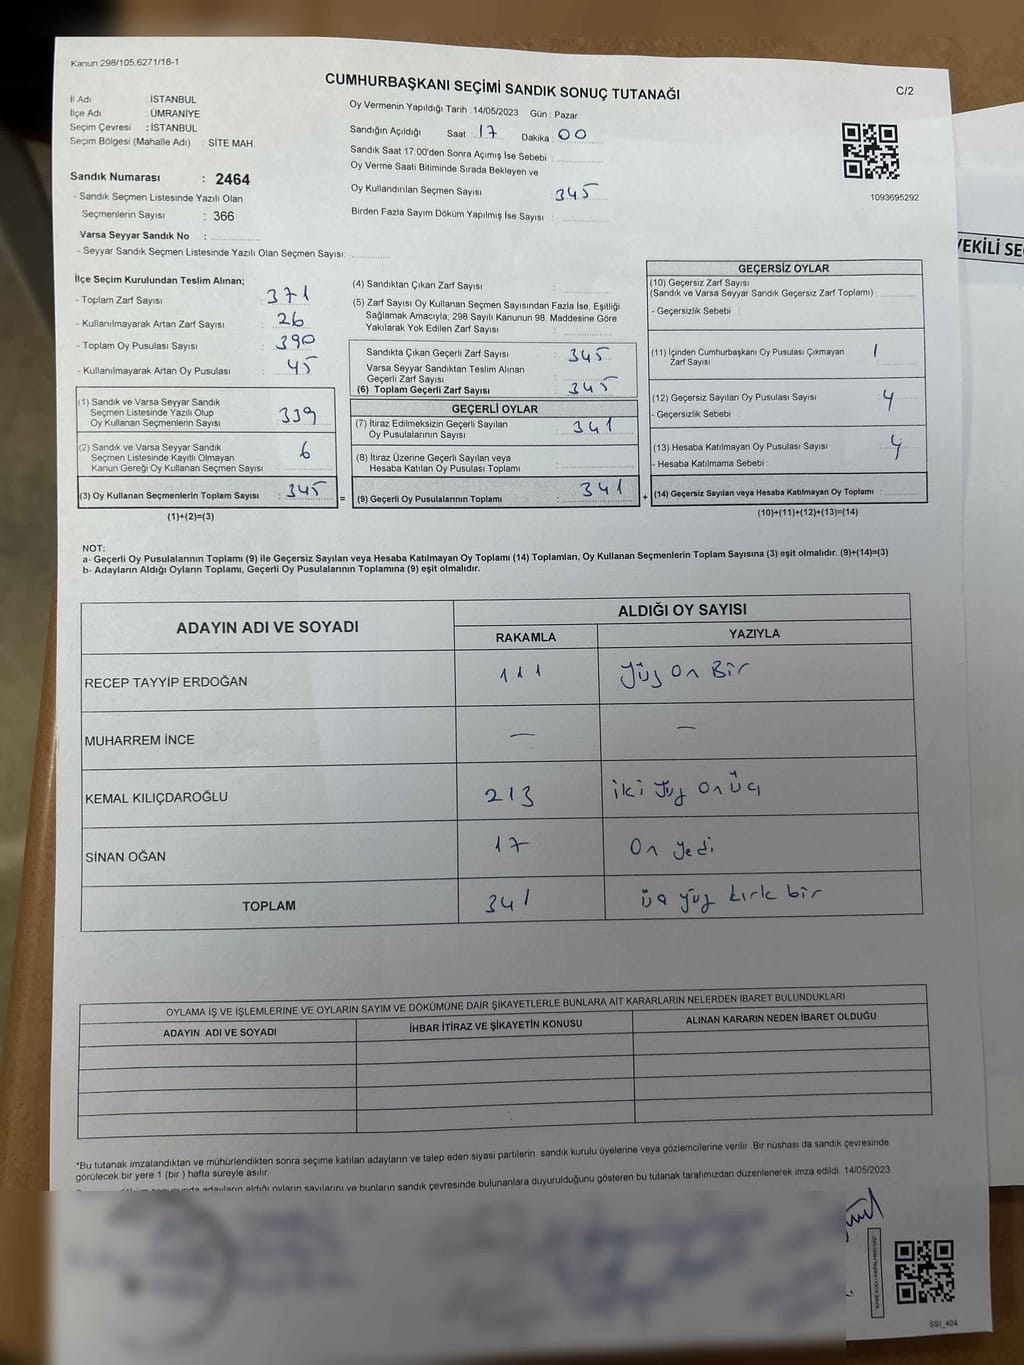 Kanun 298/105,6271/18-1
CUMHURBAŞKANI SEÇİMİ SANDIK SONUÇ TUTANAĞI
C/2
İl Adı : İSTANBUL
İlçe Adı : ÜMRANİYE
Seçim Çevresi : İSTANBUL
Seçim Bölgesi (Mahalle Adı) : SİTE MAH
Sandık Numarası : 2464
- Sandık Seçmen Listesinde Yazılı Olan
Seçmenlerin Sayısı : 366
Varsa Seyyar Sandık No :
- Seyyar Sandık Seçmen Listesinde Yazılı Olan Seçmen Sayısı:
Oy Vermenin Yapıldığı Tarih : 14/05/2023 Gün : Pazar
Sandığın Açıldığı Saat : 17 Dakika : 00
Sandık Saat 17:00'den Sonra Açımış İse Sebebi :
Oy Verme Saati Bitiminde Sırada Bekleyen ve
Oy Kullandırılan Seçmen Sayısı : 345
Birden Fazla Sayım Döküm Yapılmış İse Sayısı :
1093695292
VEKİLİ SE
İlçe Seçim Kurulundan Teslim Alınan;
- Toplam Zarf Sayısı : 371
- Kullanılmayarak Artan Zarf Sayısı : 26
- Toplam Oy Pusulası Sayısı : 390
- Kullanılmayarak Artan Oy Pusulası : 45
(1) Sandık ve Varsa Seyyar Sandık
Seçmen Listesinde Yazılı Olup
Oy Kullanan Seçmenlerin Sayısı : 339
(2) Sandık ve Varsa Seyyar Sandık
Seçmen Listesinde Kayıtlı Olmayan
Kanun Gereği Oy Kullanan Seçmen Sayısı : 6
(3) Oy Kullanan Seçmenlerin Toplam Sayısı : 345
(1)+(2)=(3)
=
(4) Sandıktan Çıkan Zarf Sayısı :
(5) Zarf Sayısı Oy Kullanan Seçmen Sayısından Fazla İse, Eşitliği
Sağlamak Amacıyla; 298 Sayılı Kanunun 98. Maddesine Göre
Yakılarak Yok Edilen Zarf Sayısı :
Sandıkta Çıkan Geçerli Zarf Sayısı : 345
Varsa Seyyar Sandıktan Teslim Alınan
Geçerli Zarf Sayısı :
(6) Toplam Geçerli Zarf Sayısı : 345
GEÇERLİ OYLAR
(7) İtiraz Edilmeksizin Geçerli Sayılan
Oy Pusulalarının Sayısı : 341
(8) İtiraz Üzerine Geçerli Sayılan veya
Hesaba Katılan Oy Pusulası Toplamı :
(9) Geçerli Oy Pusulalarının Toplamı : 341
+
GEÇERSİZ OYLAR
(10) Geçersiz Zarf Sayısı
(Sandık ve Varsa Seyyar Sandık Geçersiz Zarf Toplamı) :
- Geçersizlik Sebebi :
(11) İçinden Cumhurbaşkanı Oy Pusulası Çıkmayan
Zarf Sayısı : 1
(12) Geçersiz Sayılan Oy Pusulası Sayısı : 4
- Geçersizlik Sebebi :
(13) Hesaba Katılmayan Oy Pusulası Sayısı : 4
- Hesaba Katılmama Sebebi :
(14) Geçersiz Sayılan veya Hesaba Katılmayan Oy Toplamı :
(10)+(11)+(12)+(13)=(14)
NOT:
a- Geçerli Oy Pusulalarının Toplamı (9) ile Geçersiz Sayılan veya Hesaba Katılmayan Oy Toplamı (14) Toplamları, Oy Kullanan Seçmenlerin Toplam Sayısına (3) eşit olmalıdır. (9)+(14)=(3)
b- Adayların Aldığı Oyların Toplamı, Geçerli Oy Pusulalarının Toplamına (9) eşit olmalıdır.
ADAYIN ADI VE SOYADI
ALDIĞI OY SAYISI
RAKAMLA YAZIYLA
RECEP TAYYİP ERDOĞAN 111 Yüz On Bir
MUHARREM İNCE — —
KEMAL KILIÇDAROĞLU 213 iki Yüz On üç
SİNAN OĞAN 17 On Yedi
TOPLAM 341 üç yüz kırk bir
OYLAMA İŞ VE İŞLEMLERİNE VE OYLARIN SAYIM VE DÖKÜMÜNE DAİR ŞİKAYETLERLE BUNLARA AİT KARARLARIN NELERDEN İBARET BULUNDUKLARI
ADAYIN ADI VE SOYADI İHBAR İTİRAZ VE ŞİKAYETİN KONUSU ALINAN KARARIN NEDEN İBARET OLDUĞU
*Bu tutanak imzalandıktan ve mühürlendikten sonra seçime katılan adayların ve talep eden siyasi partilerin sandık kurulu üyelerine veya gözlemcilerine verilir. Bir nüshası da sandık çevresinde
görülecek bir yere 1 (bir ) hafta süreyle asılır.
adayların aldığı oyların sayılarını ve bunların sandık çevresinde bulunanlara duyurulduğunu gösteren bu tutanak tarafımızdan düzenlenerek imza edildi. 14/05/2023
SSI_404